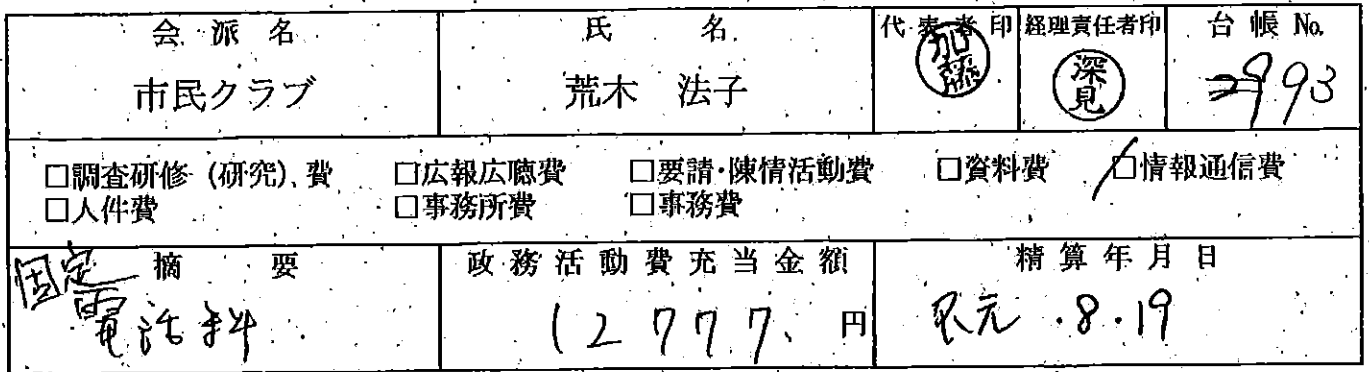 会派名 氏名 代表者印 経理責任者印 台帳No.
市民クラブ 荒木 法子 加藤 深見 2993
□調査研修(研究)費 □広報広聴費 □要請・陳情活動費 □資料費 □情報通信費
□人件費 □事務所費 □事務費
摘要 政務活動費充当金額 精算年月日
固定
電話料 12777 円 R元.8.19